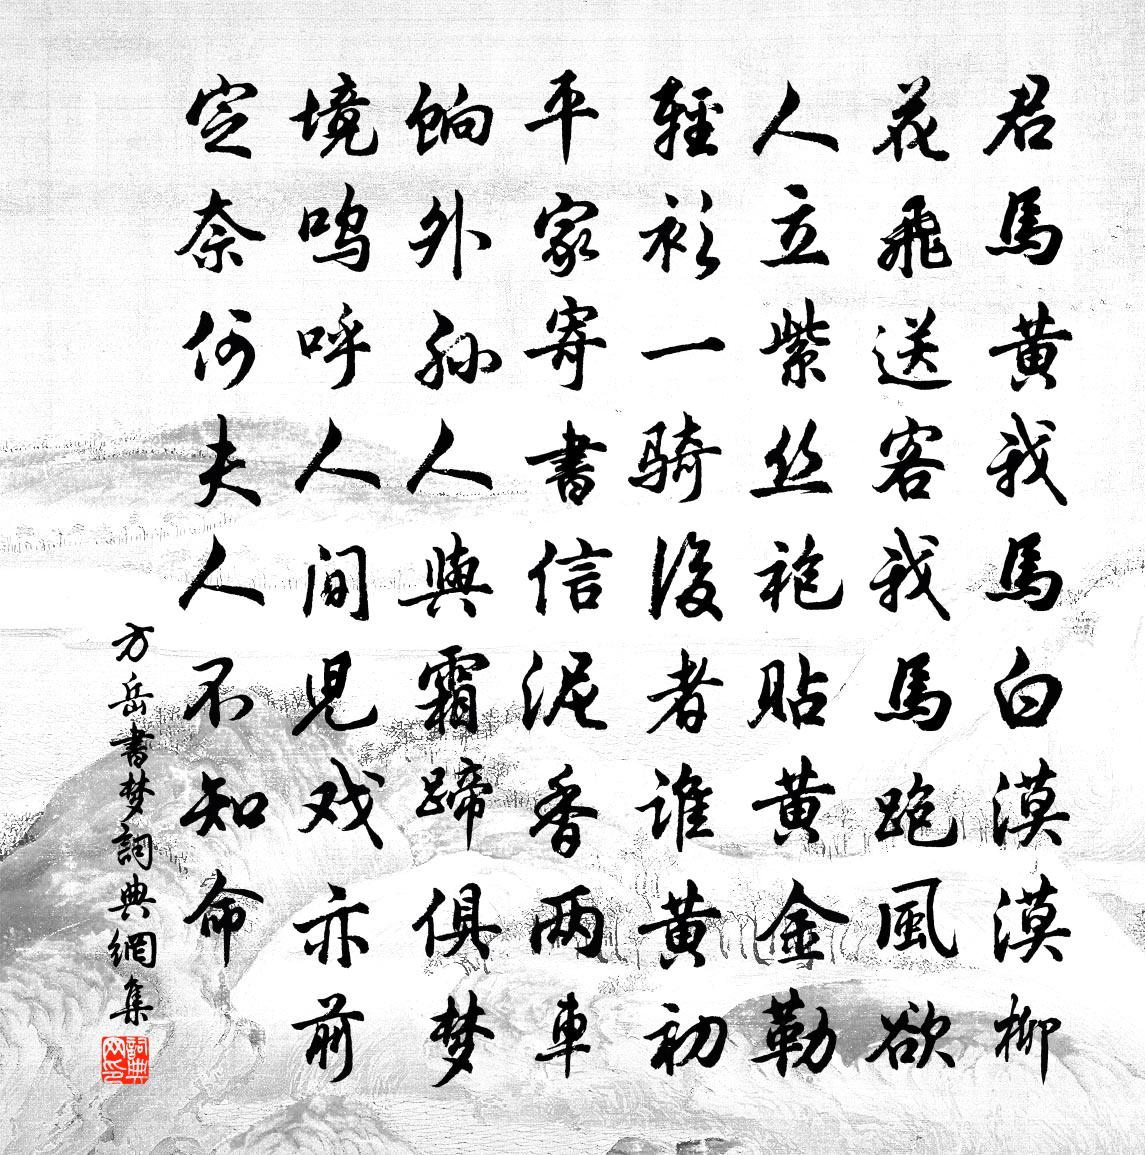 君馬黄我馬白漠漠柳
花飛送客我馬跑風欲
人立紫丝袍贴黄金勒
輕衫一骑後者谁黄初
平家寄書信泥香两車
饷外孙人與霜蹄俱梦
境呜呼人间児戏亦前
定奈何夫人不知命
方岳書梦詞典網集
詞典网印